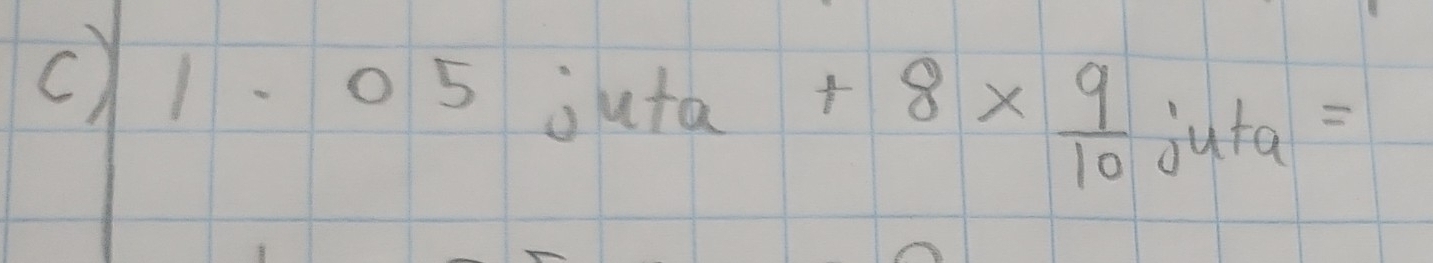 c) 1.05 juta + 8 × 9/10 juta =